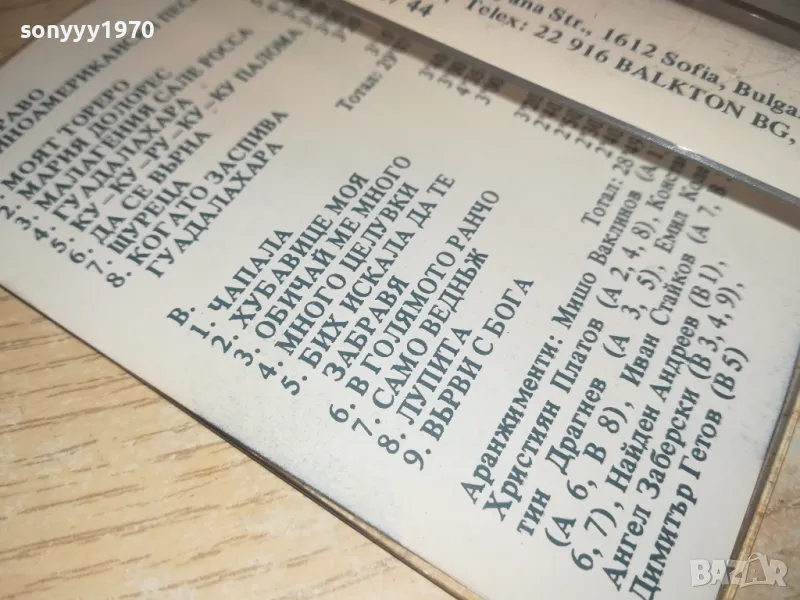 sonyyy1970
ana Str., 1612 Sofia, Bulga
44, Telex: 22 916 BALKTON BG,
РАВО
ИНОАМЕРИКАНСКИ ПЕС
МОЯТ ТОРЕРО
2. МАРИЯ ДОЛОРЕС
3. МАЛАГЕНИЯ САЛЕ РОССА
4. ГУАДАЛАХАРА
5. КУ–КУ–РУ–КУ–КУ ПАЛОМА
6. ДА СЕ ВЪРНА
7. ЩУРЕЦА
8. КОГАТО ЗАСПИВА
ГУАДАЛАХАРА
Тотал: 29
В.
1. ЧАПАЛА
2. ХУБАВИЦЕ МОЯ
3. ОБИЧАЙ МЕ МНОГО
4. МНОГО ЦЕЛУВКИ
5. БИХ ИСКАЛА ДА ТЕ
ЗАБРАВЯ
6. В ГОЛЯМОТО РАНЧО
7. САМО ВЕДНЪЖ
8. ЛУПИТА
9. ВЪРВИ С БОГА
Тотал: 28
Аранжименти: Мишо Ваклинов (А
Християн Платов (А 2, 4, 8), Конс
тин Драгнев (А 3, 5), Емил
(А 6, В 8), Иван Стайков (А 7, В
6, 7), Найден Андреев (В 1),
Ангел Заберски (В 3, 4, 9),
Димитър Гетов (В 5)
BAZAR